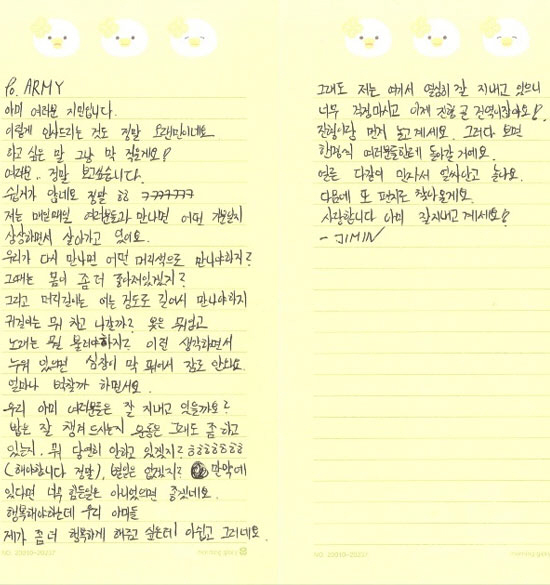 To. ARMY
아미 여러분 지민입니다.
이렇게 인사드리는 것도 정말 오랜만이네요.
하고 싶은 말 그냥 막 적을게요!
여러분.. 정말 보고싶습니다.
쉽지가 않네요 정말 ㅎㅎ ㅋㅋㅋㅋㅋㅋㅋ
저는 매일매일 여러분들과 만나면 어떤 기분일지
상상하면서 살아가고 있어요.
우리가 다시 만나면 어떤 머리색으로 만나야하지?
그때는 몸이 좀 더 좋아져있겠지?
그리고 머리길이는 어느 정도로 길어서 만나야하지
귀걸이는 뭐 차고 나갈까? 옷은 뭐입고
노래는 뭘 불러야하지? 이런 생각하면서
누워 있으면 심장이 막 뛰어서 잠도 안와요.
얼마나 벅찰까 하면서요.
우리 아미 여러분들은 잘 지내고 있을까요?
밥은 잘 챙겨 드시는지 운동은 그래도 좀 하고
있는지. 뭐 당연히 안하고 있겠지? ㅎㅎㅎㅎㅎㅎㅎ
(해야합니다 정말), 별일은 없겠지? 만약에
있다면 너무 힘든일은 아니었으면 좋겠네요.
행복해야하는데 우리 아미들
제가 좀 더 행복하게 해주고 싶은데! 아쉽고 그러네요.
그래도 저는 여기서 열심히 잘 지내고 있으니
너무 걱정마시고 이제 진형 곧 전역이잖아요!
진형이랑 먼저 놀고 계세요. 그러다 보면
한명씩 여러분들한테 돌아갈 거예요.
얼른 다같이 만나서 일상나고 놀아요.
다음에 또 편지로 찾아올게요.
사랑합니다 아미 잘지내고 계세요!
- JIMIN
morning glory